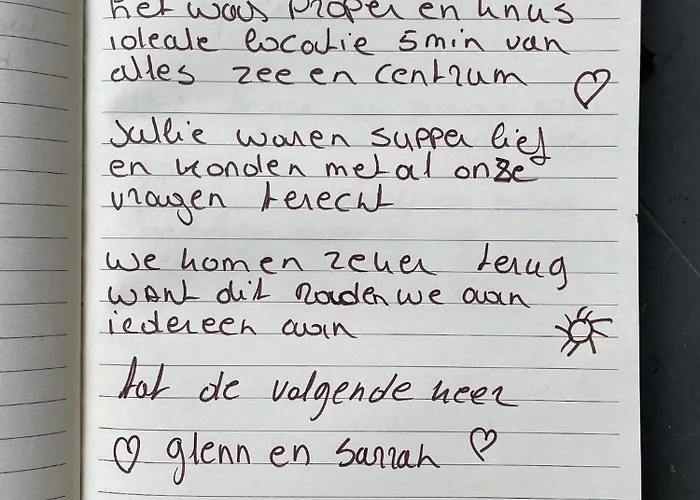 het was proper en knus
ideale locatie 5min van
alles zee en centrum
Jullie waren supper lief
en konden met al onze
vragen terecht
we komen zeker terug
want dit raaden we aan
iedereen aan
tot de volgende keer
glenn en Sarrah